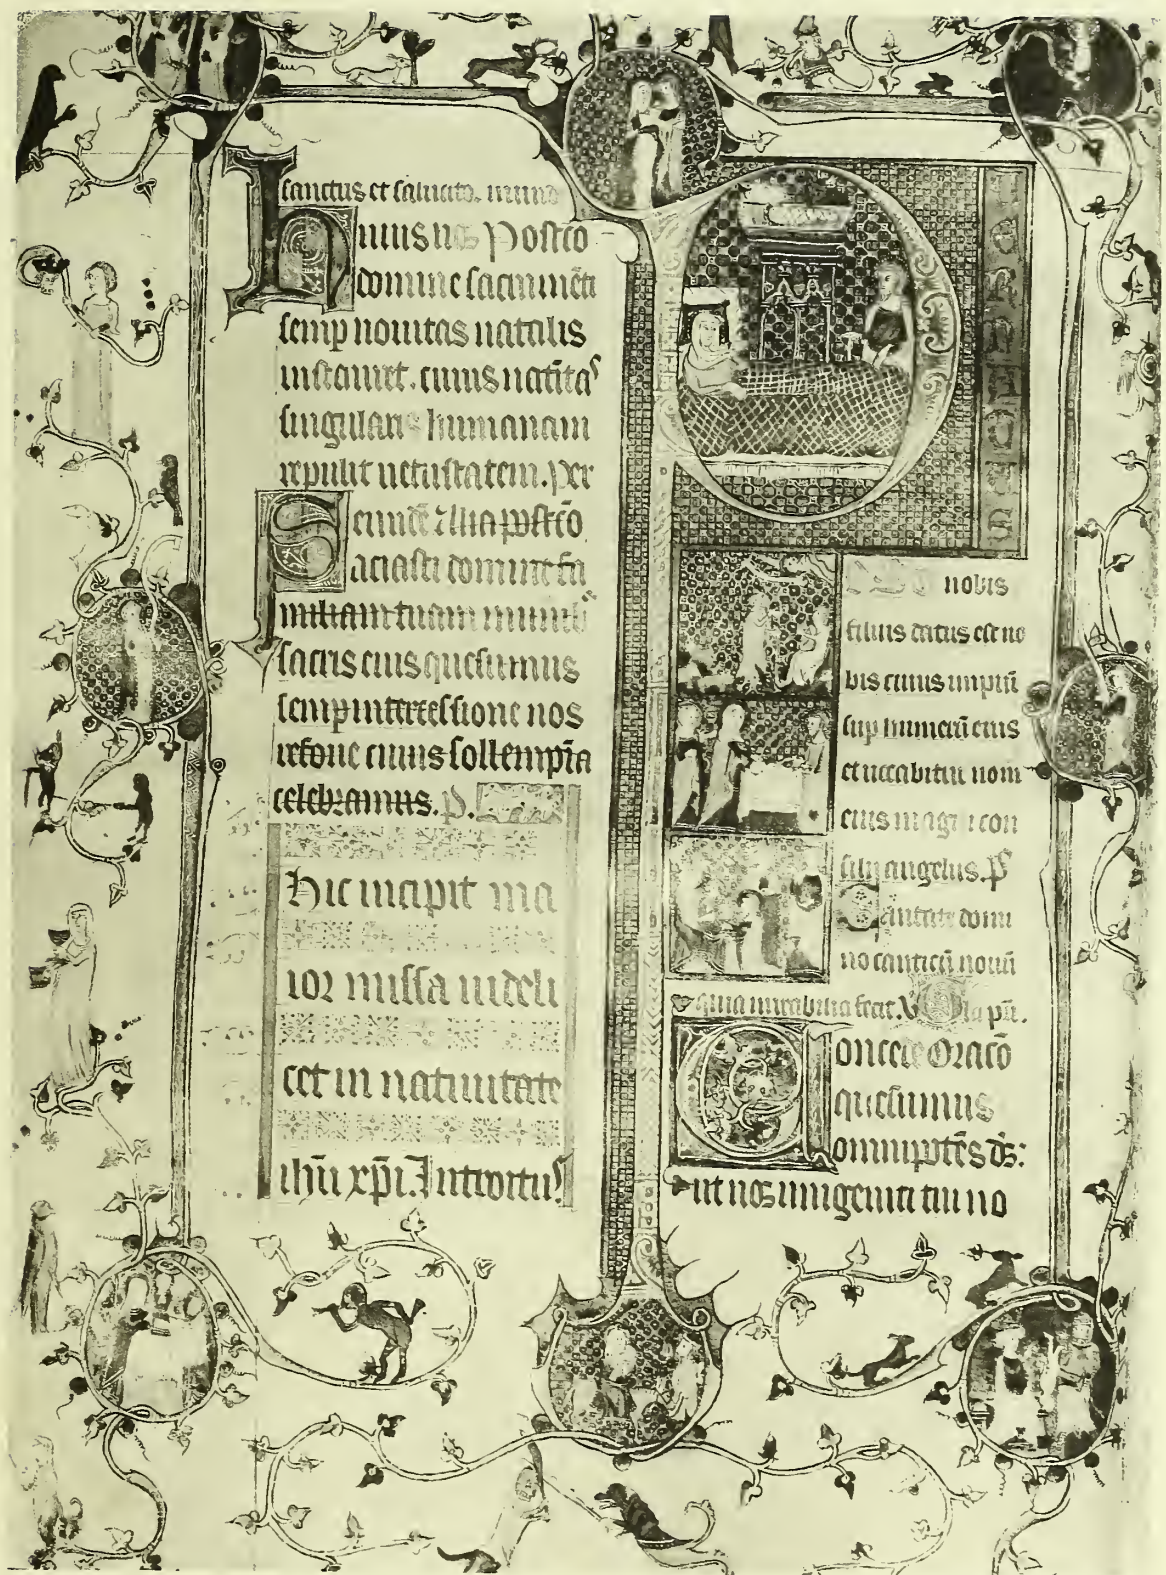 sanctus et saluato. mund
huius nos Postco
domine sacramēti
semp nouitas natalis
instauret. cuius natīta⁹
singularis humanam
repulit uetustatem. per
eundē postcō
Saciasti domine fa
miliam tuam munib
sacris eius quesumus
semp intercessione nos
refoue cuius sollempīa
celebramus. p.
Hic incipit ma
ior missa uideli
cet in natiuitate
ihū xpī. Introitus
nobis
filius datus est no
bis cuius impiū
sup humerū eius
et uocabitur nom
eius magni con
silii angelus. p̄s
Cantate domi
no canticū nouū
quia mirabilia fecit. pr̄i.
Concede Oracō
quesumus
omnipotēs ds̄:
ut nos unigeniti tui no